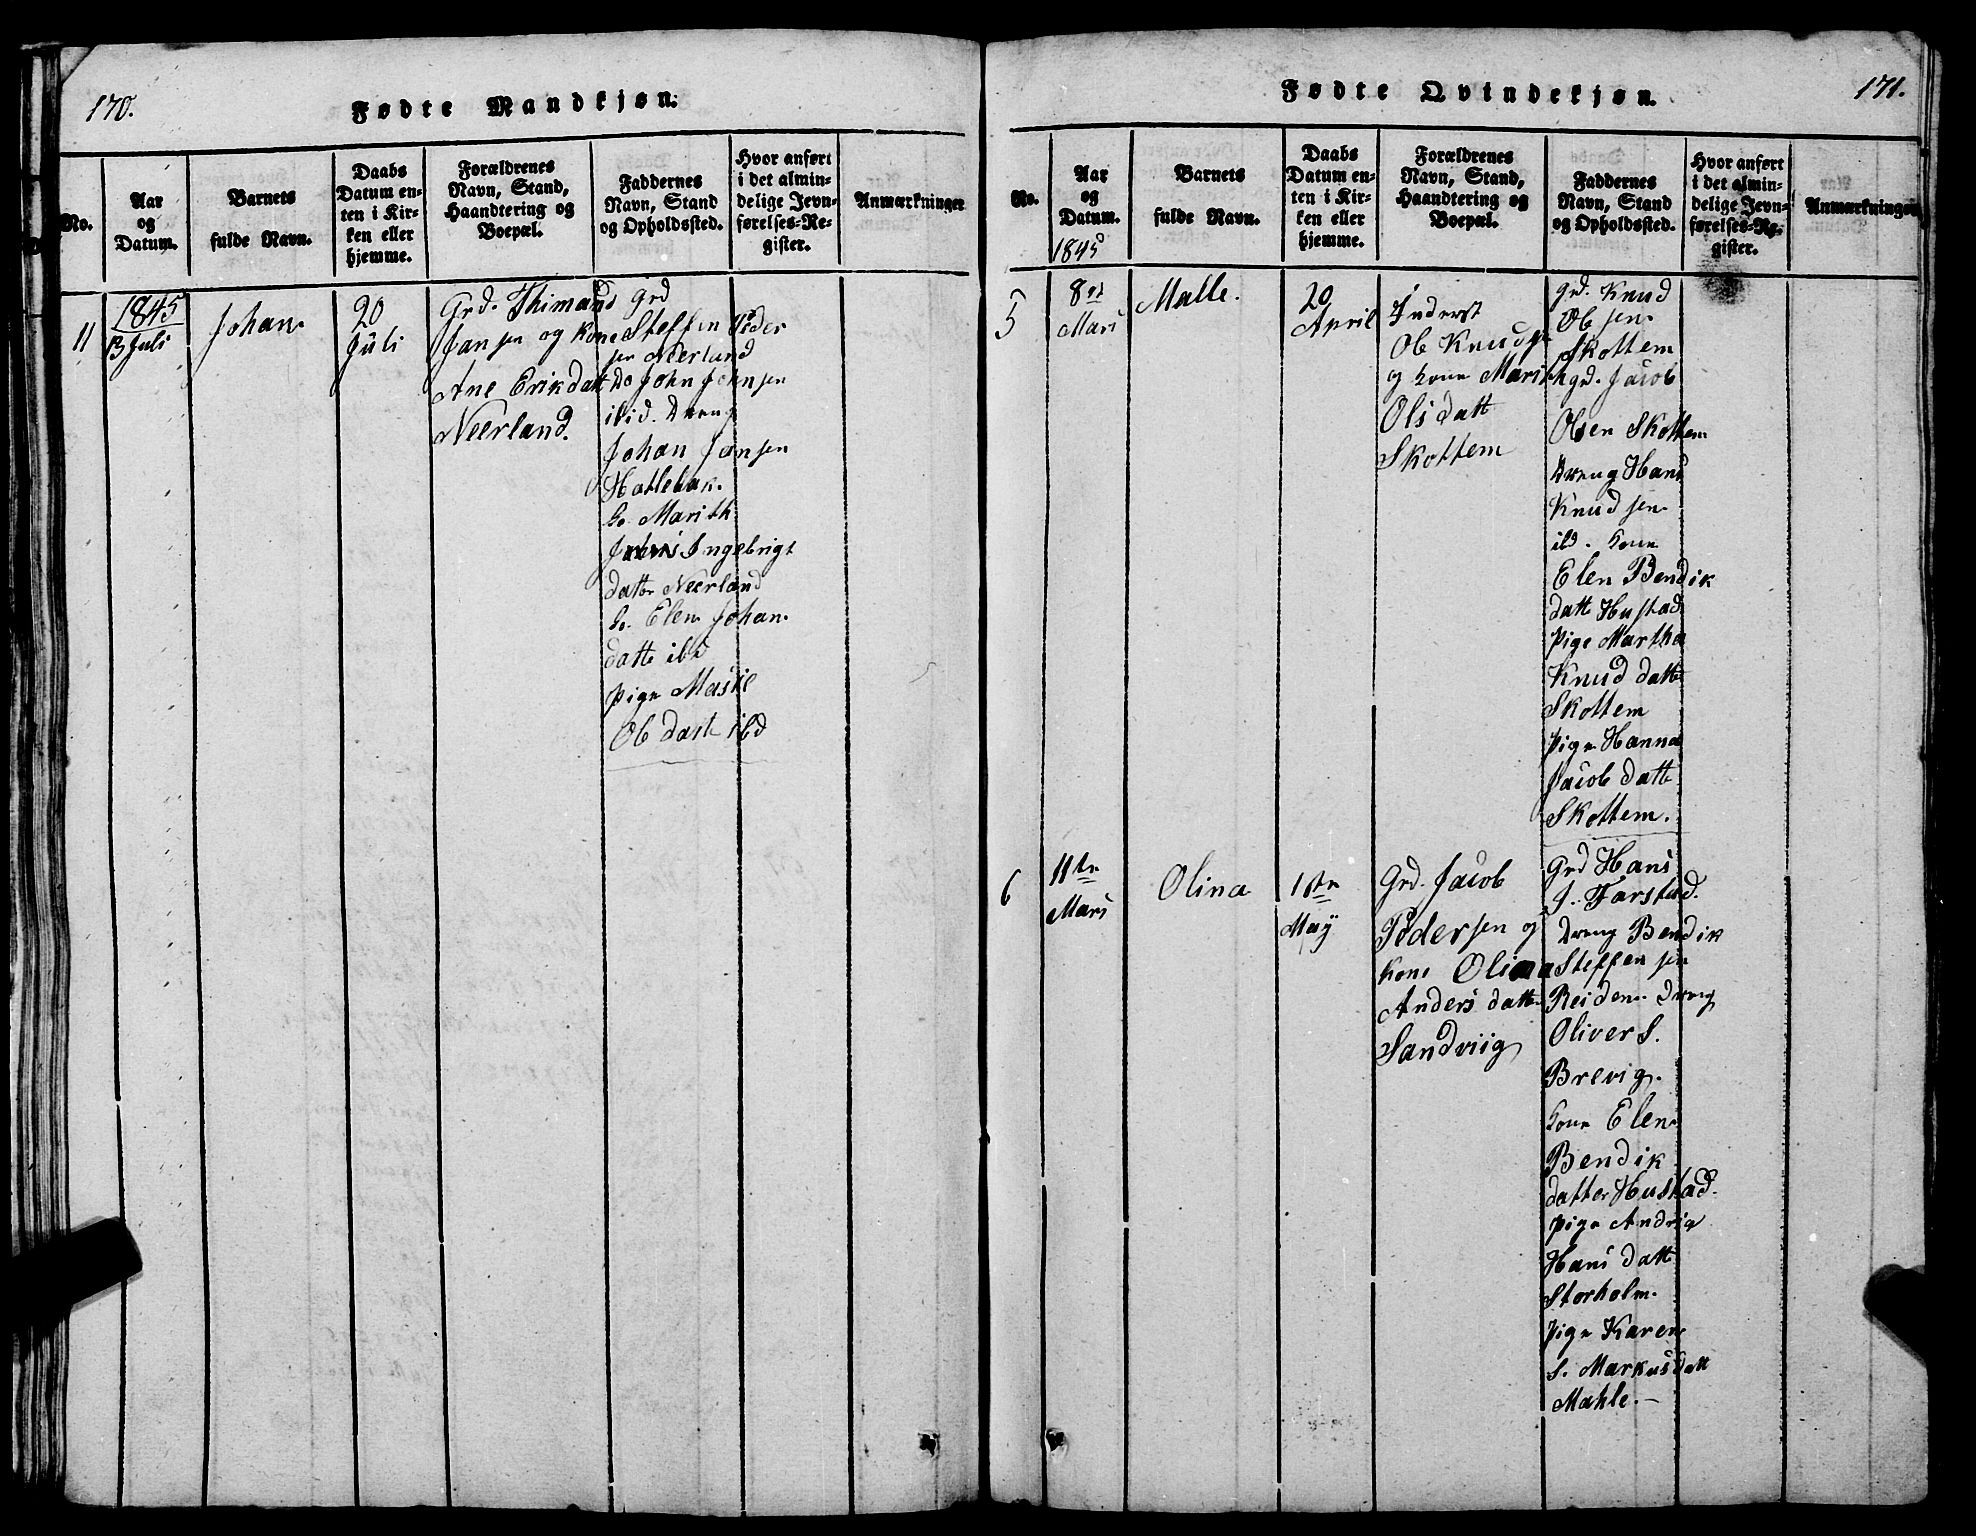 170.
Fødte Mandkjøn.
No.
Aar
og
Datum.
Barnets
fulde Navn.
Daabs
Datum en-
ten i Kir-
ken eller
hjemme.
Forældrenes
Navn, Stand,
Haandtering og
Boepæl.
Faddernes
Navn, Stand
og Opholdssted.
Hvor anført
i det almin-
delige Jevn-
førelses-Re-
gister.
Anmærkninger
11
1845
13 Juli
Johan
20
Juli
Grd. Thimand
Jansen og Kone
Ane Erikdatt
Neerland.
Grd
Steffen Peder
sen Neerland
Do John Johnsen
ibid. Dreng
Johan Jensen
Hatlebak.
Ko. Marith
Ingebrigt
datter Neerland
Ko. Elen Johan
datte ibd
Pige
Ole datt ibd
171.
Fødte Qvindekjøn.
No.
Aar
og
Datum.
1845
Barnets
fulde Navn.
Daabs
Datum en-
ten i Kir-
ken eller
hjemme.
Forældrenes
Navn, Stand,
Haandtering og
Boepæl.
Faddernes
Navn, Stand
og Opholdssted.
Hvor anført
i det almin-
delige Jevn-
førelses-Re-
gister.
Anmærkninger
5
8de
Mars
Malle.
20
April
Inderst
Ole Knudsen
og Kone Marith
Olsdatt
Skottem
Grd. Knud
Olesen
Skottem
grd. Jacob
Olsen Skottem
Dreng Hans
Knudsen
ibd. Kone
Elen Bendik
datte Hustad
Pige Martha
Knud datte
Skottem
Pige Hanna
Jacob datte
Skottem.
6
11te
Mars
Olina
1ste
May
Grd. Jacob
Pedersen og
Kone Olina
Anders datte
Sandviig
Grd Hans
J. Farstad.
Dreng Bendik
Steffensen
Reiden Dreng
Oliver S.
Brevig.
Kone Elen
Bendik
datter Hustad.
Pige Andrig
Hans datt
Storholm.
Pige Karen
S. Markusdatt
Mahle.